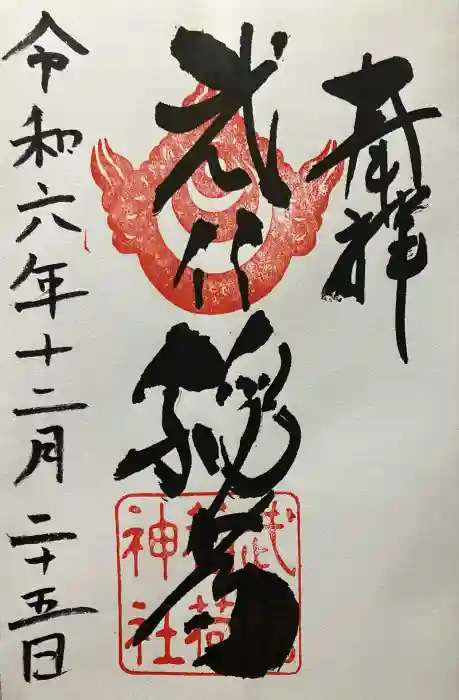 奉拝
稲荷
令和六年十二月二十五日
稲荷
神社